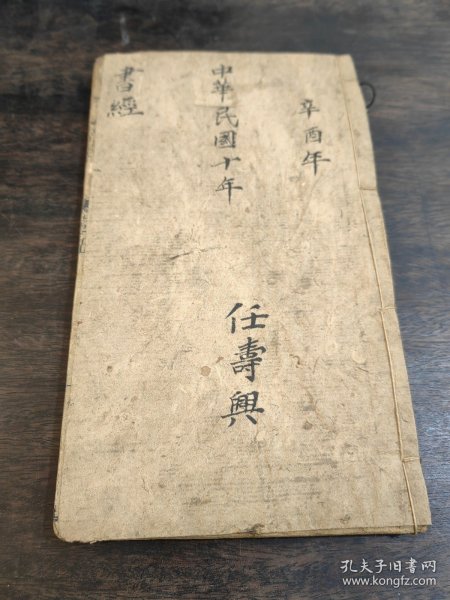 辛酉年
中華民國十年
任壽興
書經
孔夫子旧书网
www.kongfz.com